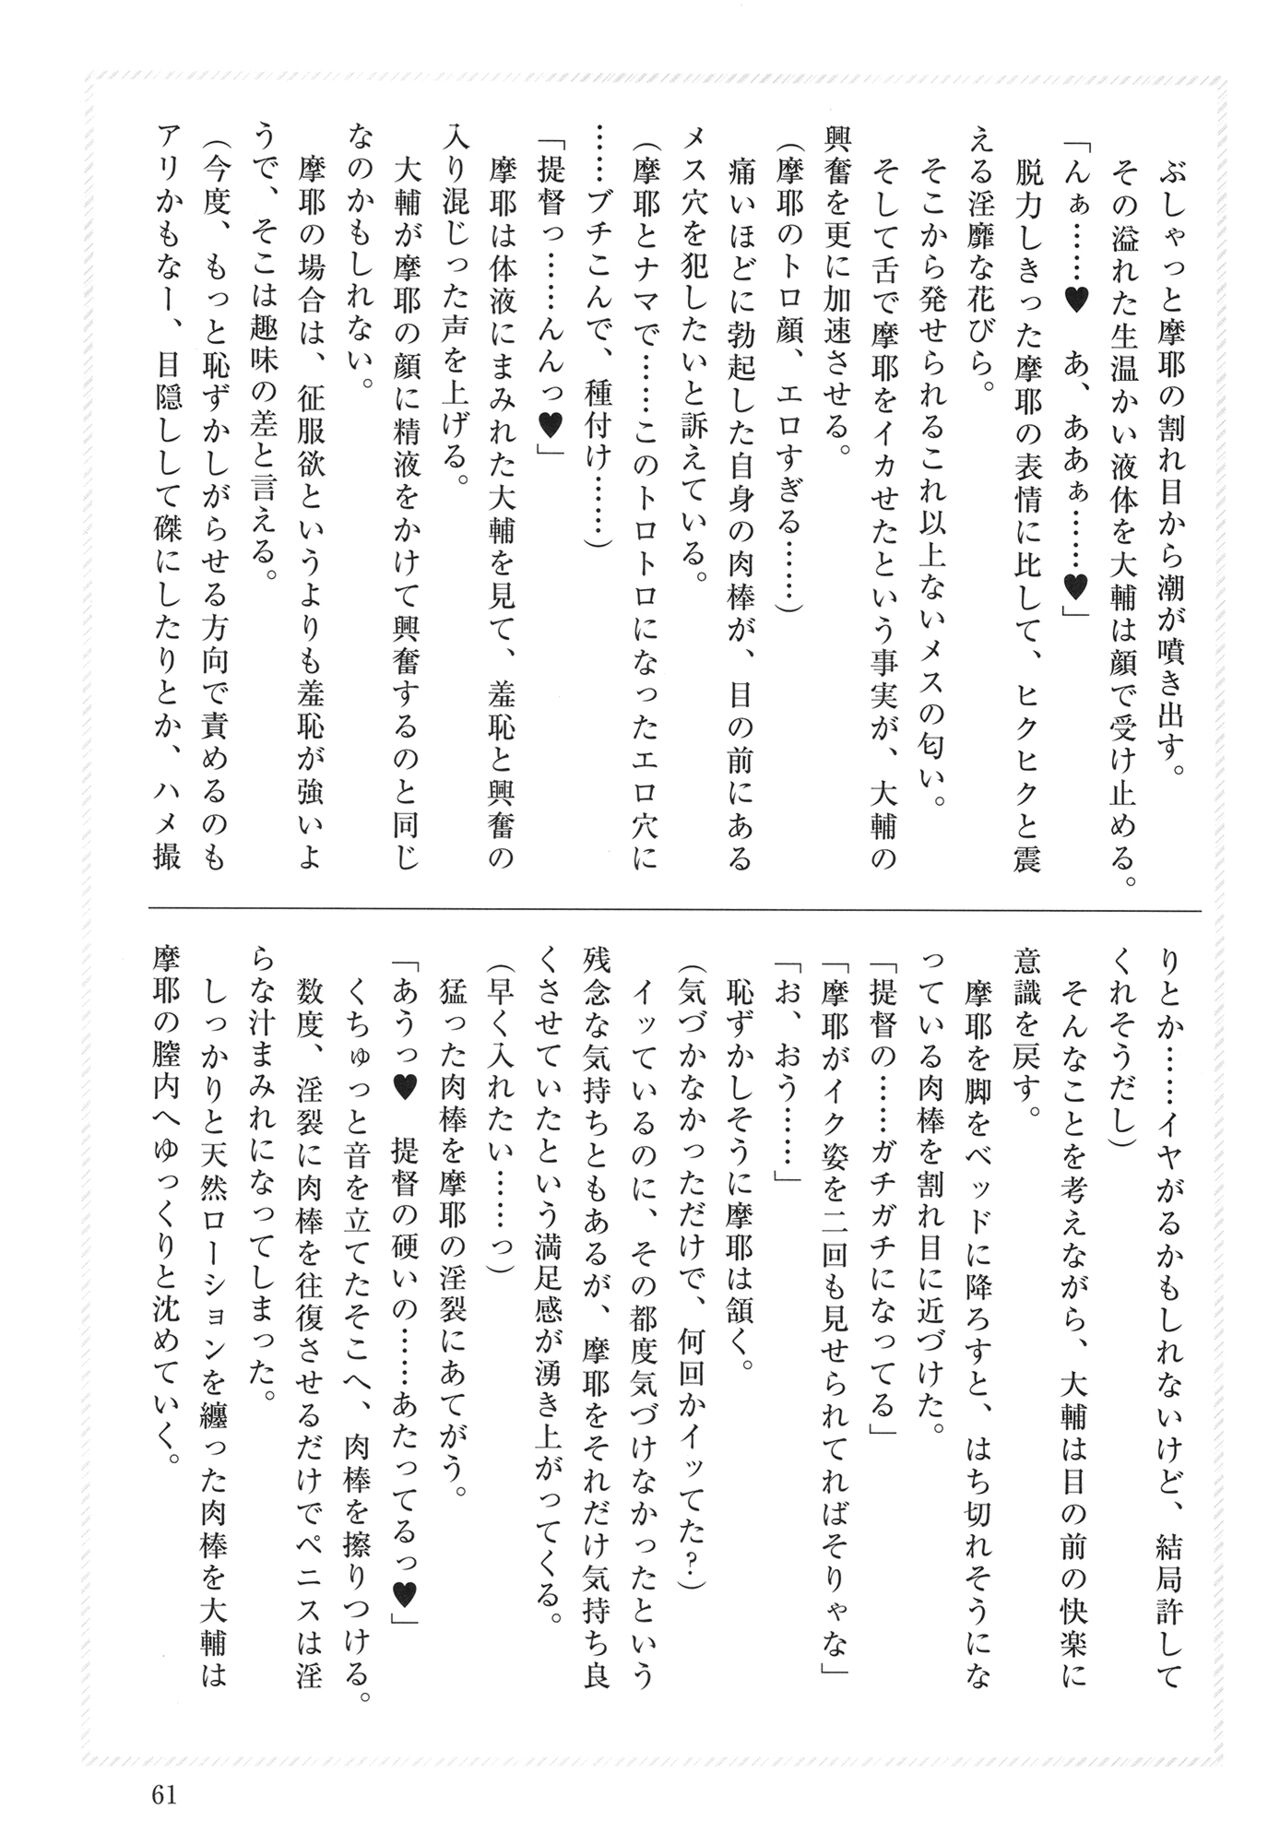 ぶしゃっと摩耶の割れ目から潮が噴き出す。
その溢れた生温かい液体を大輔は顔で受け止める。
「んぁ……♥　あ、ああぁ……♥」
脱力しきった摩耶の表情に比して、ヒクヒクと震
える淫靡な花びら。
そこから発せられるこれ以上ないメスの匂い。
そして舌で摩耶をイカせたという事実が、大輔の
興奮を更に加速させる。
(摩耶のトロ顔、エロすぎる……)
痛いほどに勃起した自身の肉棒が、目の前にある
メス穴を犯したいと訴えている。
(摩耶とナマで……このトロトロになったエロ穴に
……ブチこんで、種付け……)
「提督っ……んんっ♥」
摩耶は体液にまみれた大輔を見て、羞恥と興奮の
入り混じった声を上げる。
大輔が摩耶の顔に精液をかけて興奮するのと同じ
なのかもしれない。
摩耶の場合は、征服欲というよりも羞恥が強いよ
うで、そこは趣味の差と言える。
(今度、もっと恥ずかしがらせる方向で責めるのも
アリかもなー、目隠しして磔にしたりとか、ハメ撮
りとか……イヤがるかもしれないけど、結局許して
くれそうだし)
そんなことを考えながら、大輔は目の前の快楽に
意識を戻す。
摩耶を脚をベッドに降ろすと、はち切れそうにな
っている肉棒を割れ目に近づけた。
「提督の……ガチガチになってる」
「摩耶がイク姿を二回も見せられてればそりゃな」
「お、おう……」
恥ずかしそうに摩耶は頷く。
(気づかなかっただけで、何回かイッてた?)
イッているのに、その都度気づけなかったという
残念な気持ちともあるが、摩耶をそれだけ気持ち良
くさせていたという満足感が湧き上がってくる。
(早く入れたい……っ)
猛った肉棒を摩耶の淫裂にあてがう。
「あうっ♥　提督の硬いの……あたってるっ♥」
くちゅっと音を立てたそこへ、肉棒を擦りつける。
数度、淫裂に肉棒を往復させるだけでペニスは淫
らな汁まみれになってしまった。
しっかりと天然ローションを纏った肉棒を大輔は
摩耶の膣内へゆっくりと沈めていく。
61